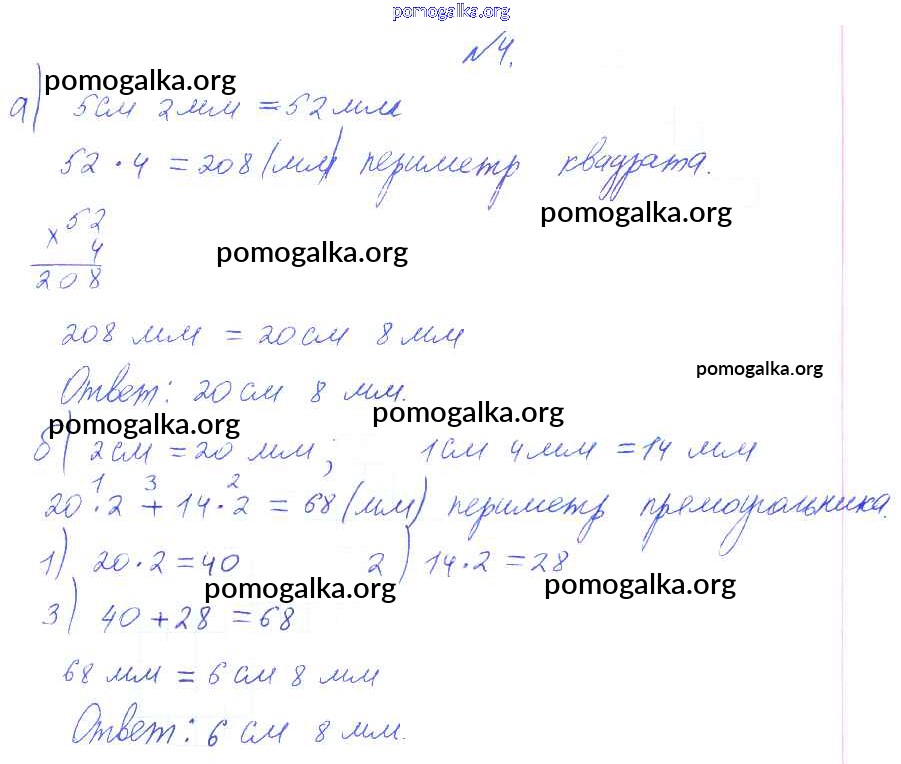 pomogalka.org
№4.
pomogalka.org
а) 5см 2мм = 52мм
52 · 4 = 208 (мм) периметр квадрата.
pomogalka.org
× 52
4
pomogalka.org
208
208 мм = 20см 8 мм
pomogalka.org
Ответ: 20см 8 мм.
pomogalka.org
pomogalka.org
б) 2см = 20 мм; 1см 4мм = 14 мм
1 3 2
20 · 2 + 14 · 2 = 68 (мм) периметр прямоугольника.
1) 20 · 2 = 40 2) 14 · 2 = 28
pomogalka.org pomogalka.org
3) 40 + 28 = 68
68 мм = 6 см 8 мм
Ответ: 6 см 8 мм.